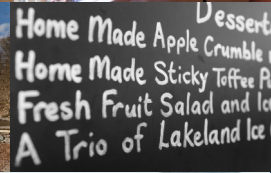 Desserts
Home Made Apple Crumble
Home Made Sticky Toffee
Fresh Fruit Salad and
A Trio of Lakeland Ice